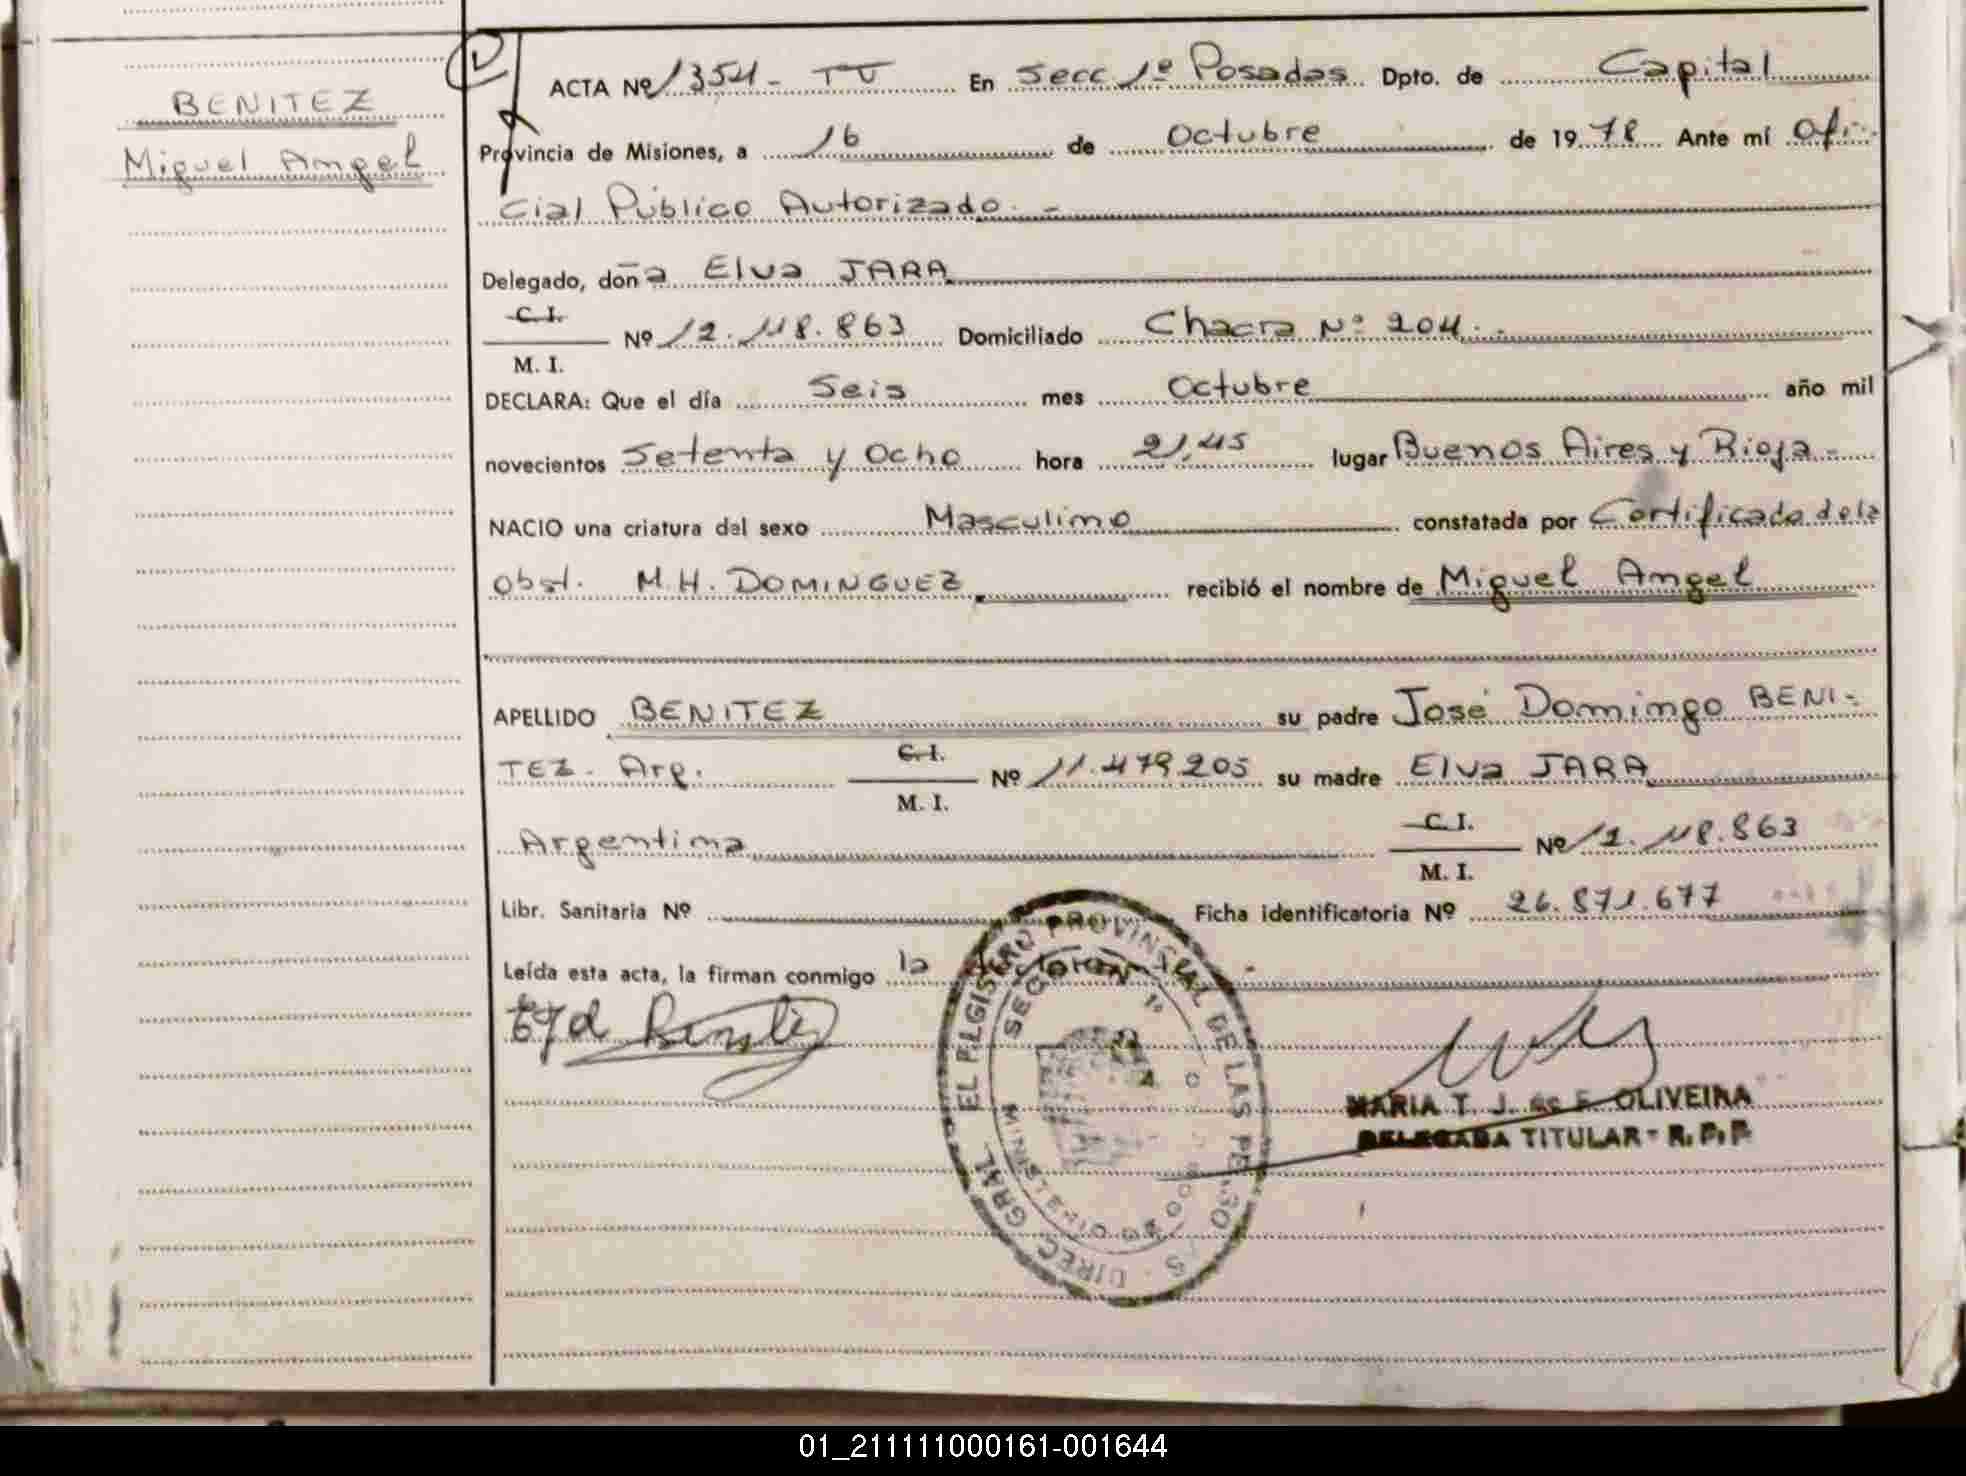 BENITEZ
Miguel Angel
ACTA Nº 1354- TU En Secc 1º Posadas Dpto. de Capital
Provincia de Misiones, a 16 de Octubre de 1978 Ante mí Ofi-
cial Público Autorizado.-
Delegado, doña Elva JARA
C. I.
Nº 12.118.863 Domiciliado Chacra Nº 204.-
M. I.
DECLARA: Que el día Seis mes Octubre año mil
novecientos Setenta y Ocho hora 21,45 lugar Buenos Aires y Rioja-
NACIO una criatura del sexo Masculino constatada por Certificado de la
obst. M.H. DOMINGUEZ recibió el nombre de Miguel Angel
APELLIDO BENITEZ su padre José Domingo BENI-
TEZ- Arg. C. I. Nº 11.479.205 su madre Elva JARA
M. I.
Argentina C. I. Nº 12.118.863
M. I.
Libr. Sanitaria Nº Ficha identificatoria Nº 26.871.677
Leída esta acta, la firman conmigo la
MARIA T. J. de F. OLIVEIRA
DELEGADA TITULAR - R. P. P.
DIREC. GRAL. EL REGISTRO PROVINCIAL DE LAS PERSONAS
SECCION 1º
MINISTERIO DE GOBIERNO
01_211111000161-001644